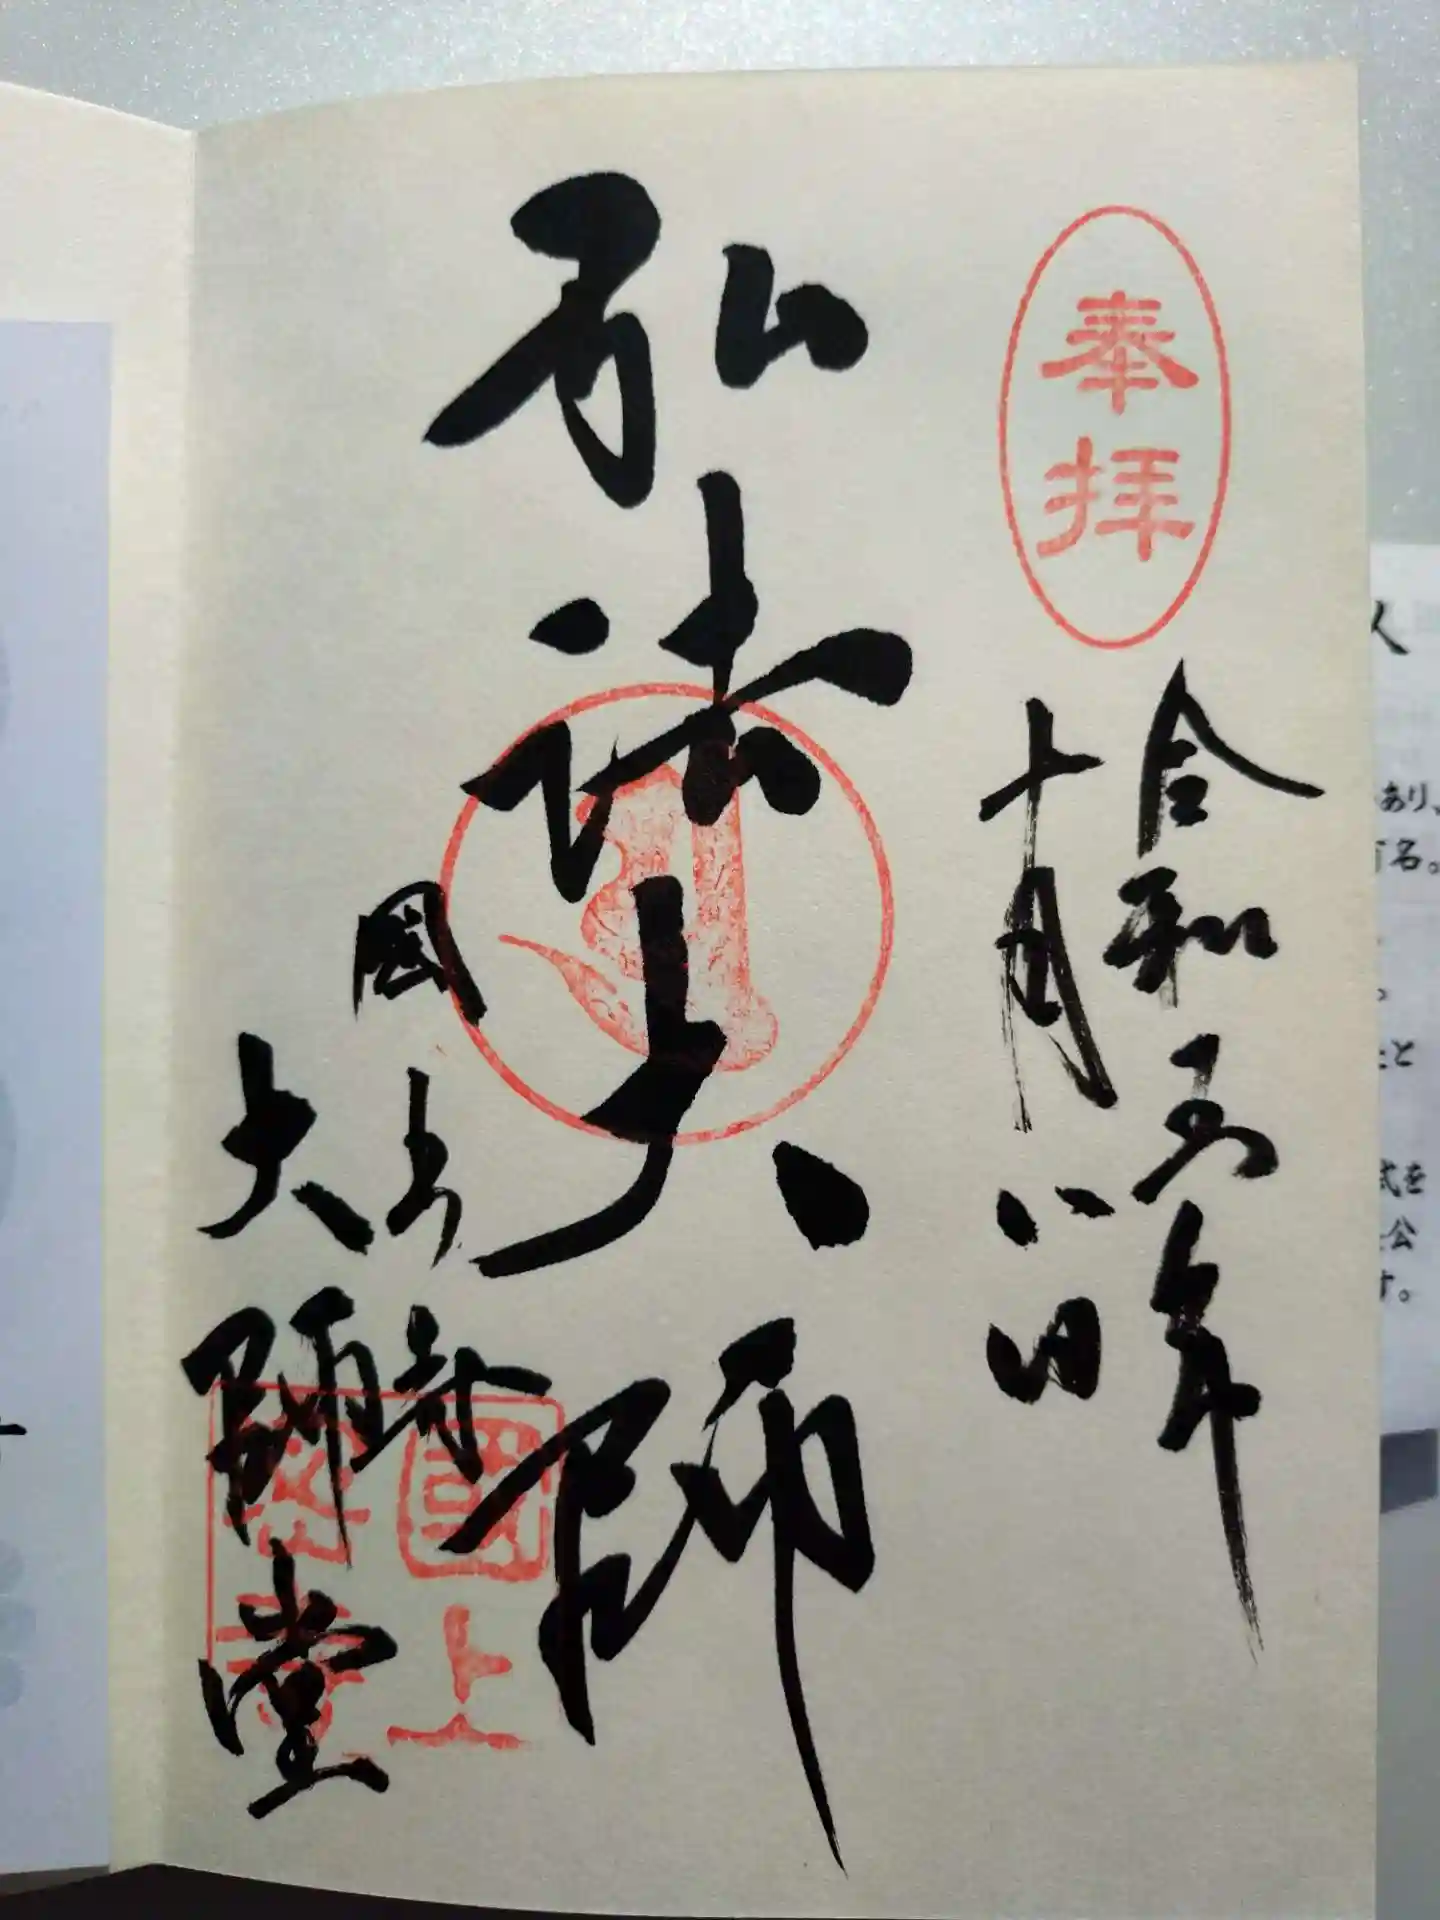 奉拝
令和五年
十月八日
弘法大師
國上寺
大師堂
國上
あり、
有名。
と
式を
公
す。